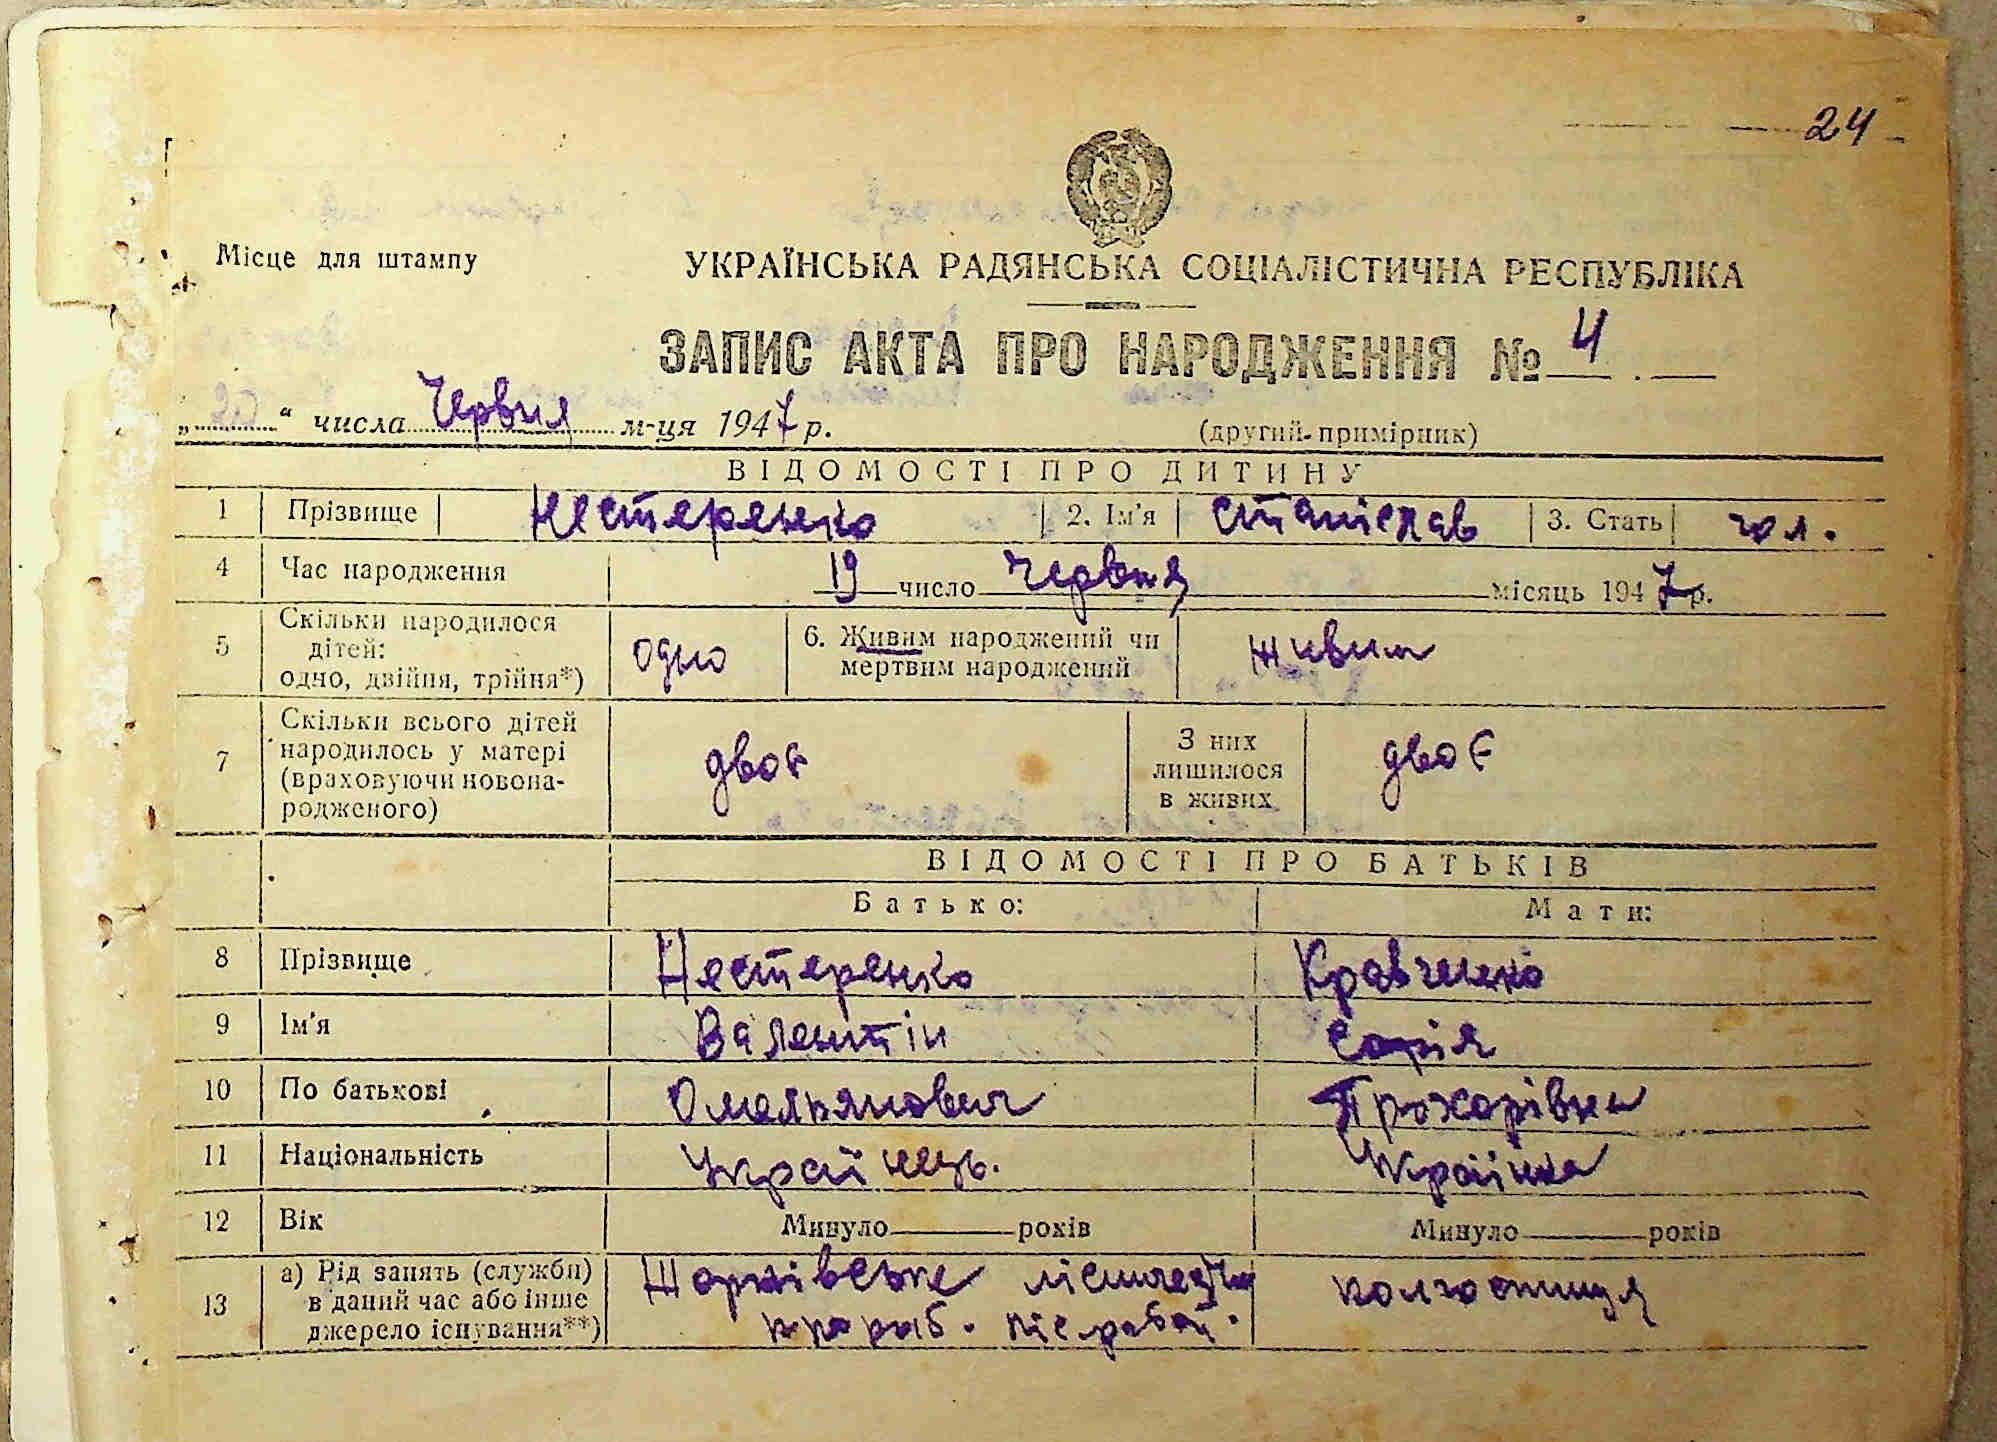 24
Місце для штампу
УКРАЇНСЬКА РАДЯНСЬКА СОЦІАЛІСТИЧНА РЕСПУБЛІКА
ЗАПИС АКТА ПРО НАРОДЖЕННЯ № 4
„ “ числа Червня м-ця 1947 р. (другий примірник)
ВІДОМОСТІ ПРО ДИТИНУ
1 Прізвище Нестеренко 2. Ім'я Станіслав 3. Стать чол.
4 Час народження 19 число Червня місяць 1947 р.
5 Скільки народилося дітей: одно, двійня, трійня*) одно 6. Живим народжений чи мертвим народжений живим
7 Скільки всього дітей народилось у матері (враховуючи новонародженого) двоє З них лишилося в живих двоє
ВІДОМОСТІ ПРО БАТЬКІВ
Батько: Мати:
8 Прізвище Нестеренко Кравченко
9 Ім'я Валентін Софія
10 По батькові Омелянович Прохорівна
11 Національність Українець. Українка
12 Вік Минуло років Минуло років
13 а) Рід занять (служби) в даний час або інше джерело існування**) колгоспниця